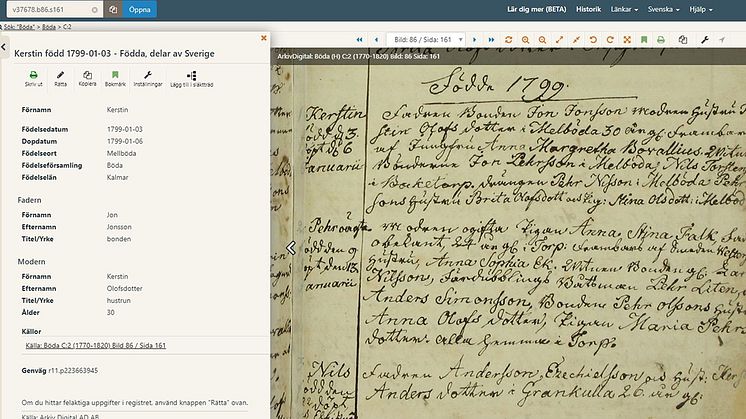 v37678.b86.s161
Öppna
Lär dig mer (BETA)
Historik
Länkar
Svenska
Hjälp
Sök: "Böda" > Böda > C:2
Bild: 86 / Sida: 161
ArkivDigital: Böda (H) C:2 (1770-1820) Bild: 86 Sida: 161
Kerstin född 1799-01-03 - Födda, delar av Sverige
Skriv ut
Rätta
Kopiera
Bokmärk
Inställningar
Lägg till i släktträd
Förnamn Kerstin
Födelsedatum 1799-01-03
Dopdatum 1799-01-06
Födelseort Mellböda
Födelseförsamling Böda
Födelselän Kalmar
Fadern
Förnamn Jon
Efternamn Jonsson
Titel/Yrke bonden
Modern
Förnamn Kerstin
Efternamn Olofsdotter
Titel/Yrke hustrun
Ålder 30
Källor
Källa: Böda C:2 (1770-1820) Bild 86 / Sida 161
Genväg r11.p223663945
Om du hittar felaktiga uppgifter i registret, använd knappen "Rätta" ovan.
Källa: Arkiv Digital AD AB
Födde 1799.
Kerstin
Januarii
Fadren Bonden Jon Jonsson Modren Hustru
Stin Olofs dotter i Melböda 30 år gl. Frambars
af Jungfru Anna Margretha Bovallius. Witn
Bönderne Jon Pehrsson i Melböda, Nils Torsten
i Bocketorp. drängen Pehr Nilsson i Melböda Peh
sons Hustru Brita Olofsdotter Pig: Stina Olsdott: i Melböd
Pehr oägta
Januarii
Modren ogifta Pigan Anna Stina Falk
obekant, 24 år gl. i Torp. Frambars af
Hustru, Anna Sophia Ek. Witnen Bonden
Nilsson, Fördubblings Båtsman Pehr Liten,
Anders Simonsson, Bondens Pehr Olssons Hustru
Anna Olofs dotter, Pigan Maria Pehrs
dotter. alla hemma i Torp.
Nils
Fadren Andersson, Ezechielsson
Anders dotter i Grankulla 26 år gl.